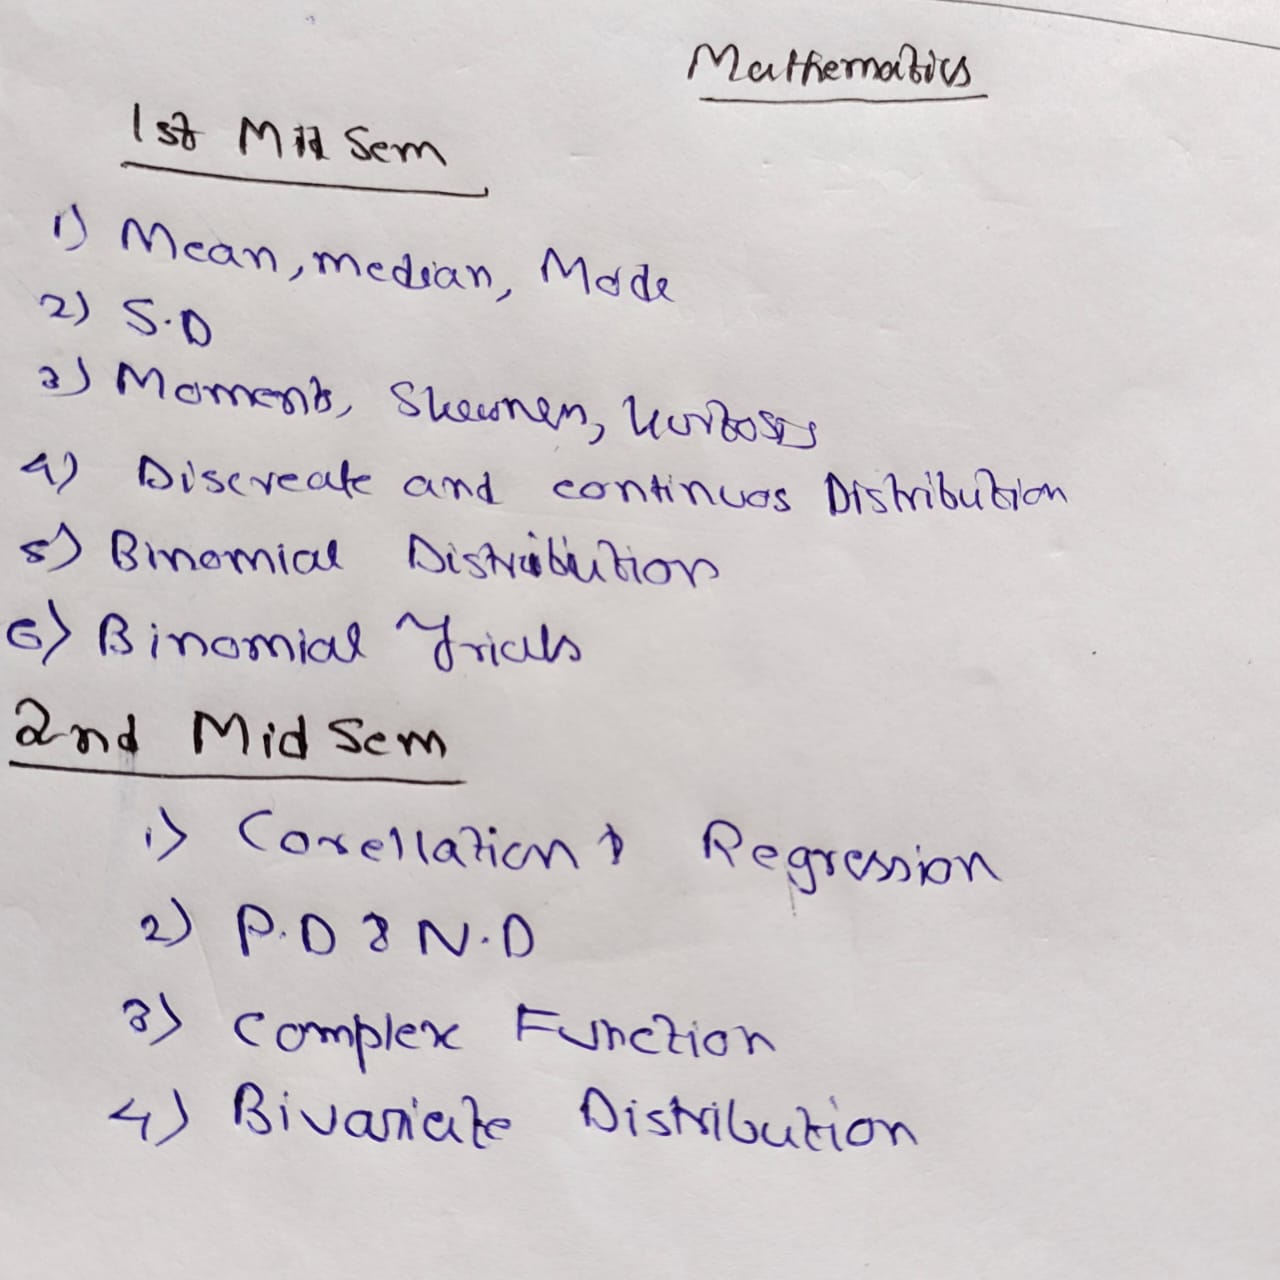 Mathematics
1st Mid Sem
1) Mean, median, Mode
2) S.D
3) Moments, Skewness, Kurtosis
4) Discreate and continuos Distribution
5) Binomial Distribution
6) Binomial Trials
2nd Mid Sem
1) Corellation & Regression
2) P.D & N.D
3) Complex Function
4) Bivariate Distribution